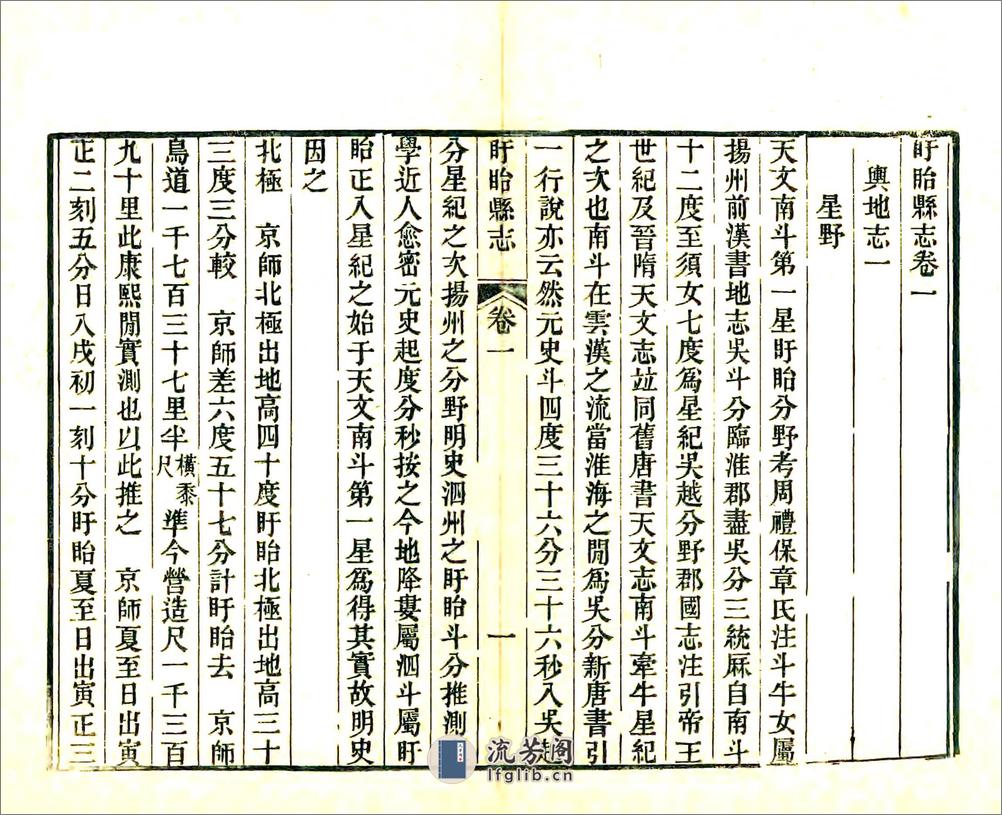 盱眙縣志卷一
輿地志一
星野
天文南斗第一星盱眙分野考周禮保章氏注斗牛女屬
揚州前漢書地志吳斗分臨淮郡盡吳分三統厤自南斗
十二度至須女七度爲星紀吳越分野郡國志注引帝王
世紀及晉隋天文志竝同舊唐書天文志南斗牽牛星紀
之次也南斗在雲漢之流當淮海之閒爲吳分新唐書引
一行說亦云然元史斗四度三十六分三十六秒入吳越
盱眙縣志 卷一 一
分星紀之次揚州之分野明史泗州之盱眙斗分推測之
學近人愈密元史起度分秒按之今地降婁屬泗斗屬盱
眙正入星紀之始于天文南斗第一星爲得其實故明史
因之
北極 京師北極出地高四十度盱眙北極出地高三十
三度三分較 京師差六度五十七分計盱眙去 京師
鳥道一千七百三十七里半橫黍尺準今營造尺一千三百
九十里此康熙閒實測也以此推之 京師夏至日出寅
正二刻五分日入戌初一刻十分盱眙夏至日出寅正三
流芳阁
lfglib.cn